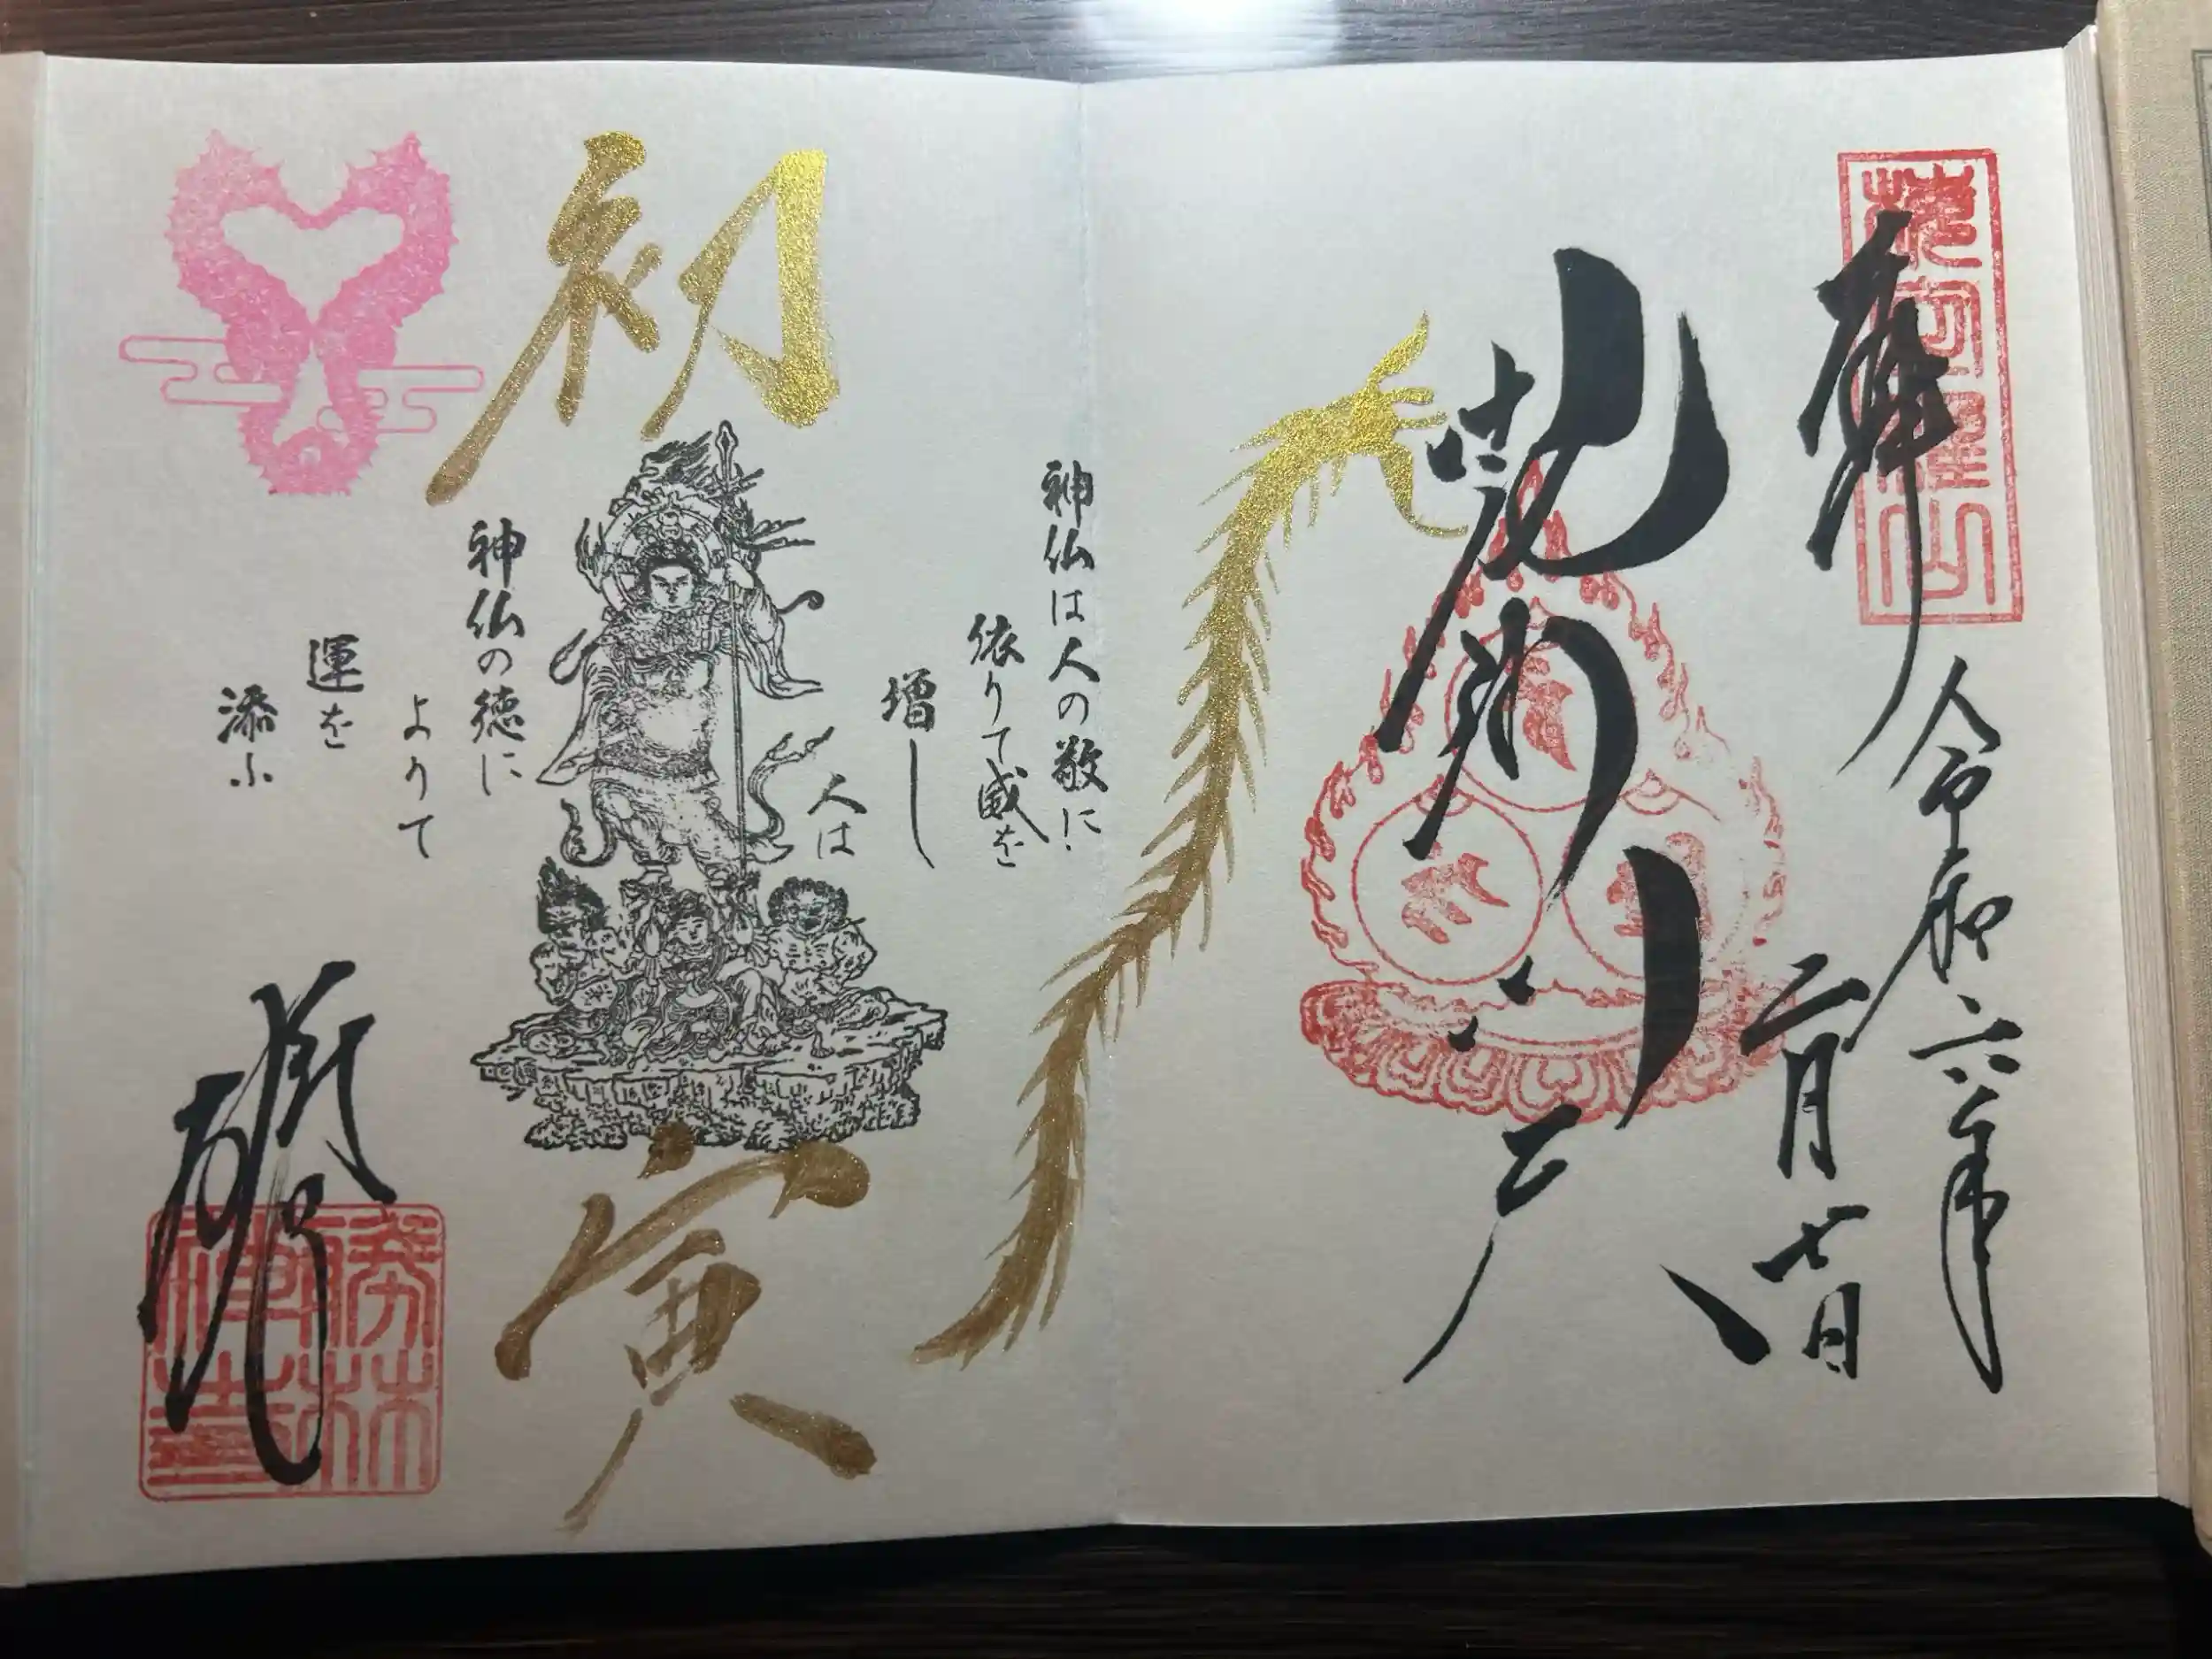 奉拝
令和六年
二月七日
毘沙門天
神仏は人の敬に
依りて威を
増し
人は
神仏の徳に
よりて
運を
添ふ
初寅